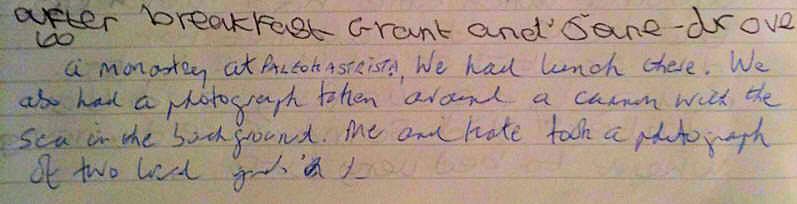 after breakfast Grant and Jane drove
to
a monastery at PALEOKASTRISTA, We had lunch there. We
also had a photograph taken around a cannon with the
sea in the background. Me and Kate took a photograph
of two local